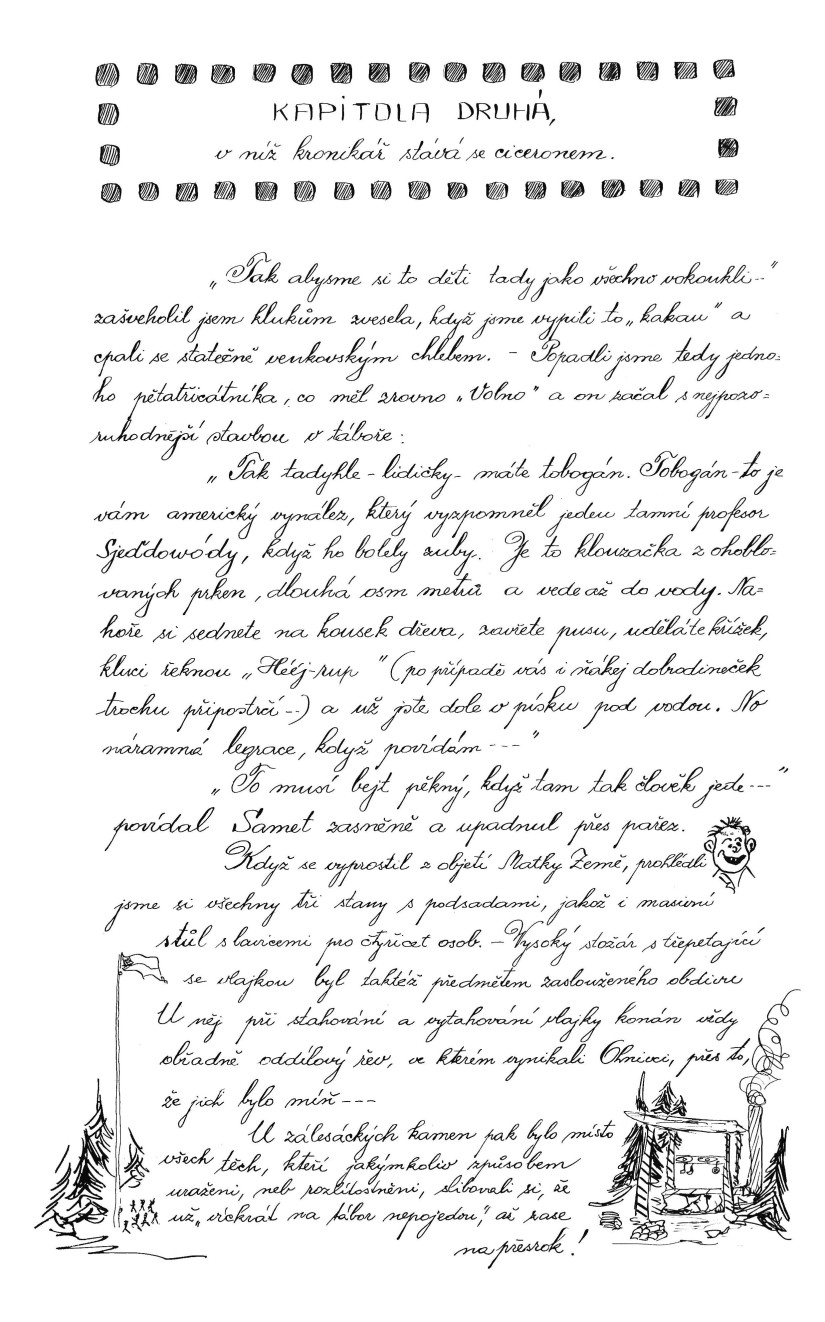 KAPITOLA DRUHÁ,
v níž kronikář stává se ciceronem.
„Tak abysme si to děti tady jako všechno vokoukli--"
zašveholil jsem klukům zvesela, když jsme vypili to „kakau" a
cpali se statečně venkovským chlebem. - Popadli jsme tedy jedno=
ho pětatřicátníka, co měl zrovno „Volno" a on začal s nejpozo=
ruhodnější stavbou v táboře:
„Tak tadyhle - lidičky - máte tobogán. Tobogán - to je
vám americký vynález, který vyzpomněl jeden tamní profesor
Sjeďdowódy, když ho bolely zuby. Je to klouzačka z ohoblo=
vaných prken, dlouhá osm metrů a vede až do vody. Na=
hoře si sednete na kousek dřeva, zavřete pusu, uděláte křížek,
kluci řeknou „Hééj-rup" (po případě vás i ňákej dobrodineček
trochu připostrčí--) a už jste dole v písku pod vodou. No
náramná legrace, když povídám ---"
„To musí bejt pěkný, když tam tak člověk jede ---"
povídal Samet zasněně a upadnul přes pařez.
Když se vyprostil z objetí Matky Země, prohlédli
jsme si všechny tři stany s podsadami, jakož i masivní
stůl s lavicemi pro čtyřicet osob. - Vysoký stožár s třepetající
se vlajkou byl taktéž předmětem zaslouženého obdivu
U něj při stahování a vytahování vlajky konán vždy
obřadně oddílový řev, ve kterém vynikali Ohnivci, přes to,
že jich bylo míň ---
U zálesáckých kamen pak bylo místo
všech těch, kteří jakýmkoliv způsobem
uraženi, neb rozlítostněni, slibovali si, že
už „víckrát na tábor nepojedou", až zase
na přesrok!